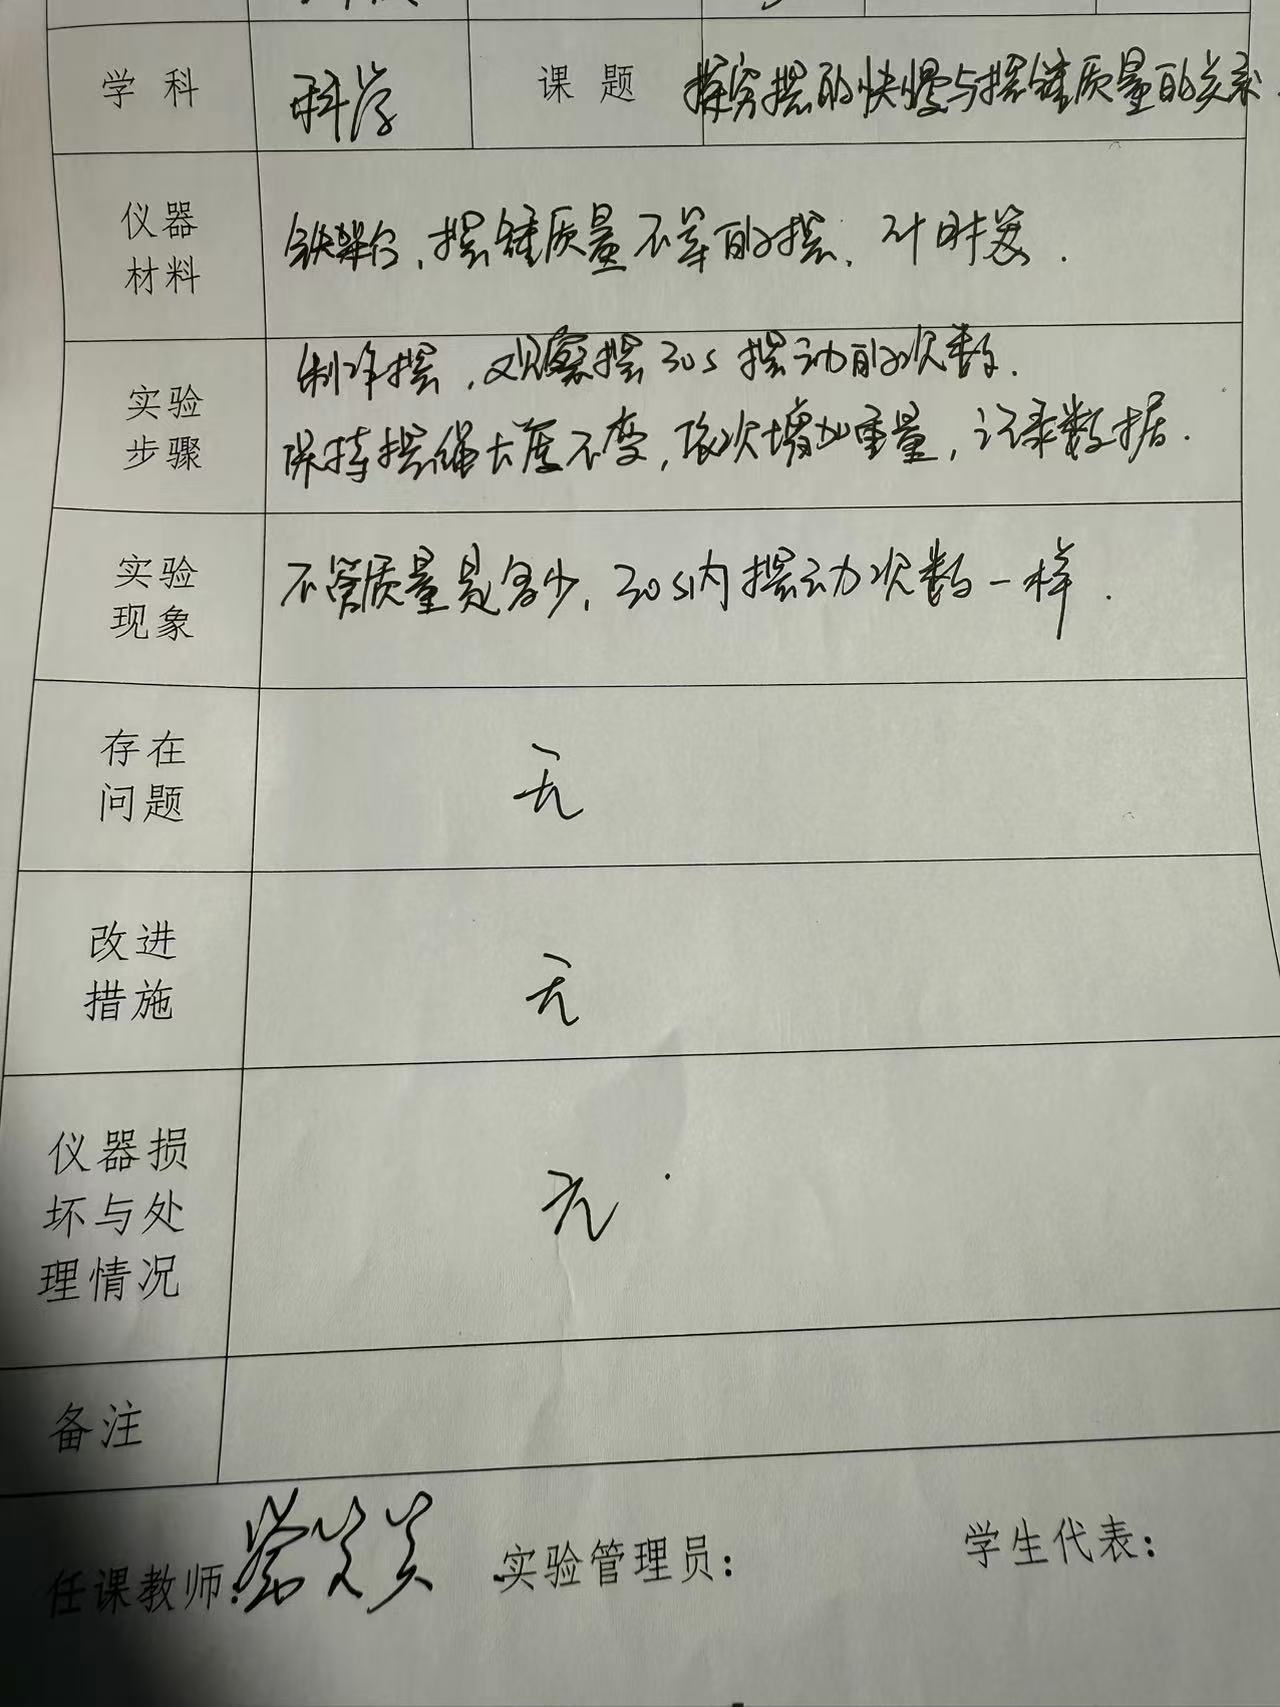 学科 科学 课题 探究摆的快慢与摆锤质量的关系.
仪器
材料
铁架台、摆锤质量不等的摆、计时器.
制作摆，观察摆30s摆动的次数.
实验
步骤
保持摆绳长度不变，依次增加重量，记录数据.
实验
现象
不管质量是多少，30s内摆动次数一样.
存在
问题
无
改进
措施
无
仪器损
坏与处
理情况
无.
备注
任课教师: 实验管理员: 学生代表: